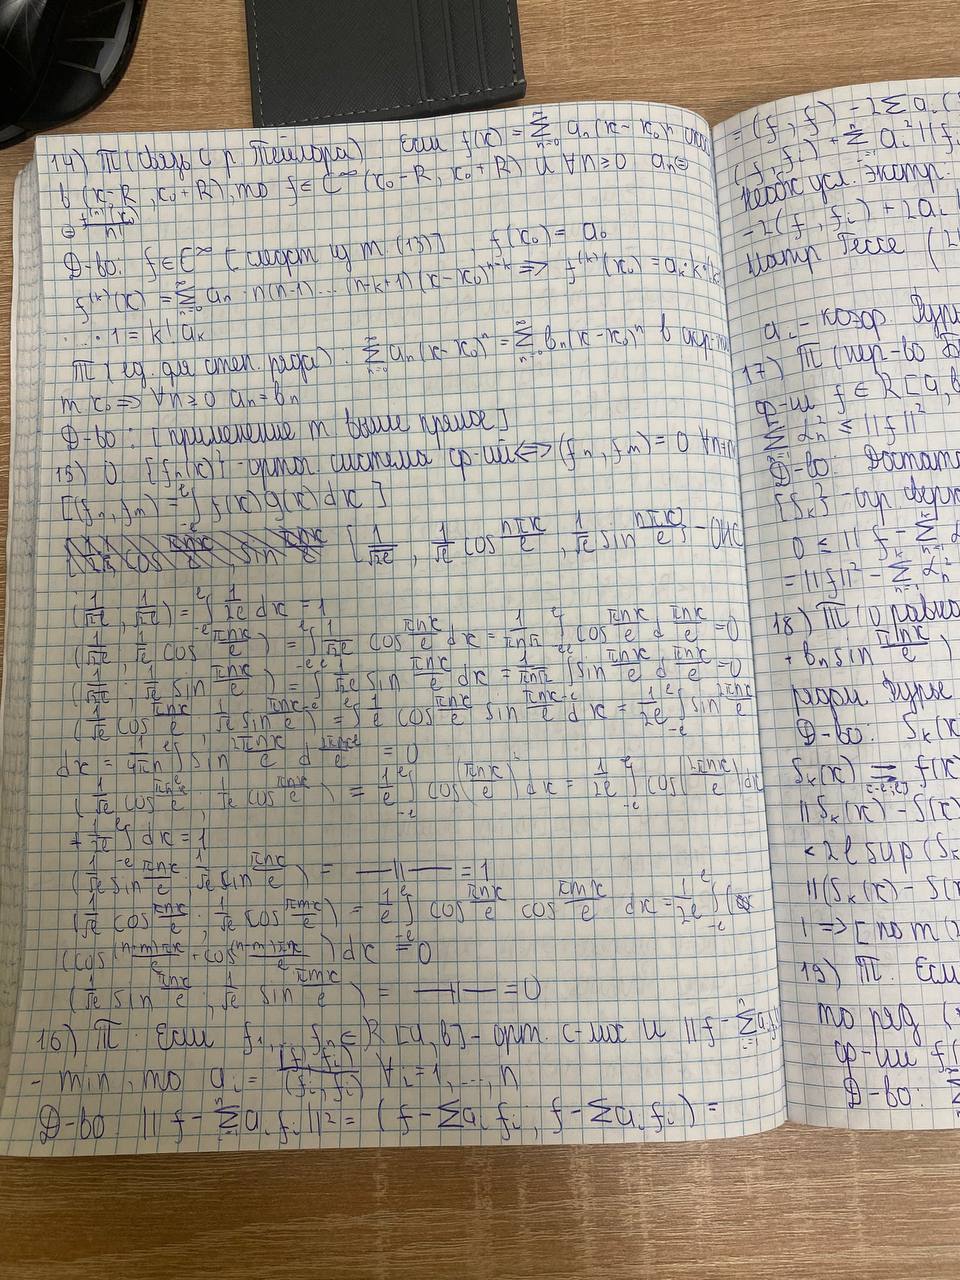 14) Т (связь с р. Тейлора): Если f(x) = ∑_{n=0}^{∞} aₙ(x-x₀)ⁿ
в (x₀-R, x₀+R), то f ∈ C^∞(x₀-R, x₀+R) и ∀n≥0 aₙ =
= f⁽ⁿ⁾(x₀)/n!
Д-во: f ∈ C^∞ [следует из т. (13)], f(x₀) = a₀
f⁽ᵏ⁾(x) = ∑_{n=0}^{∞} aₙ · n(n-1)...(n-k+1)(x-x₀)ⁿ⁻ᵏ => f⁽ᵏ⁾(x₀) = aₖ·k·(k
... · 1 = k! aₖ
Т (ед. для степ. ряда): ∑_{n=0}^{∞} aₙ(x-x₀)ⁿ = ∑_{n=0}^{∞} bₙ(x-x₀)ⁿ в окр-ти
т x₀ => ∀n≥0 aₙ = bₙ
Д-во: [применение т выше прямое]
15) О. {fₙ(x)} - ортог система ф-ий <=> (fₙ, fₘ) = 0 ∀n≠m
[(fₙ, fₘ) = ∫_{-l}^{l} f(x)g(x)dx]
{1/√2l, 1/√l cos πnx/l, 1/√l sin πnx/l} - ОНС
(1/√2l, 1/√2l) = ∫_{-l}^{l} 1/2l dx = 1
(1/√2l, 1/√l cos πnx/l) = ∫_{-l}^{l} 1/√2l cos πnx/l dx = 1/πn√2 ∫_{-l}^{l} cos πnx/l d πnx/l = 0
(1/√2l; 1/√l sin πnx/l) = ∫_{-l}^{l} 1/√2l sin πnx/l dx = 1/πn√2 ∫_{-l}^{l} sin πnx/l d πnx/l = 0
(1/√l cos πnx/l; 1/√l sin πnx/l) = ∫_{-l}^{l} 1/l cos πnx/l sin πnx/l dx = 1/2l ∫_{-l}^{l} sin 2πnx/l
dx = 1/4πn ∫_{-l}^{l} sin 2πnx/l d 2πnx/l = 0
(1/√l cos πnx/l; 1/√l cos πnx/l) = 1/l ∫_{-l}^{l} cos(πnx/l)² dx = 1/2l ∫_{-l}^{l} cos(2πnx/l) dx
+ 1/2l ∫_{-l}^{l} dx = 1
(1/√l sin πnx/l; 1/√l sin πnx/l) = —||— = 1
(1/√l cos πnx/l; 1/√l cos πmx/l) = 1/l ∫_{-l}^{l} cos πnx/l cos πmx/l dx = 1/2l ∫_{-l}^{l}
(cos (n+m)πx/l + cos (n-m)πx/l) dx = 0
(1/√l sin πnx/l; 1/√l sin πmx/l) = —||— = 0
16) Т. Если f₁,...,fₙ ∈ R[a,b] - орт. с-ма и ||f - ∑_{i=1}^{n} aᵢfᵢ||
- min, то aᵢ = (f, fᵢ)/(fᵢ, fᵢ) ∀i=1,...,n
Д-во ||f - ∑aᵢfᵢ||² = (f - ∑aᵢfᵢ; f - ∑aᵢfᵢ) =
= (f, f) - 2∑aᵢ(
(f, fᵢ) + ∑aᵢ²||fᵢ
Необх усл. экстр.
-2(f, fᵢ) + 2aᵢ
Матр Гессе (2
aᵢ - коэф Фурье
17) Т (нер-во Б
ф-ии, f ∈ R[a, b
∑αₙ² ≤ ||f||²
Д-во: Достато
{Sₖ} - огр. сверх
0 ≤ ||f - ∑_{n=1}
= ||f||² - ∑_{n=1} αₙ²
18) Т (о равно
+ bₙ sin πnx/l)
рядом Фурье
Д-во: Sₖ(x
Sₖ(x) ⇉ f(x
||Sₖ(x) - S(x)
< 2l sup(Sₖ
||(Sₖ(x) - S(x
1 => [по т (
19) Т. Если
то ряд (
ф-ии f(
Д-во: ∑